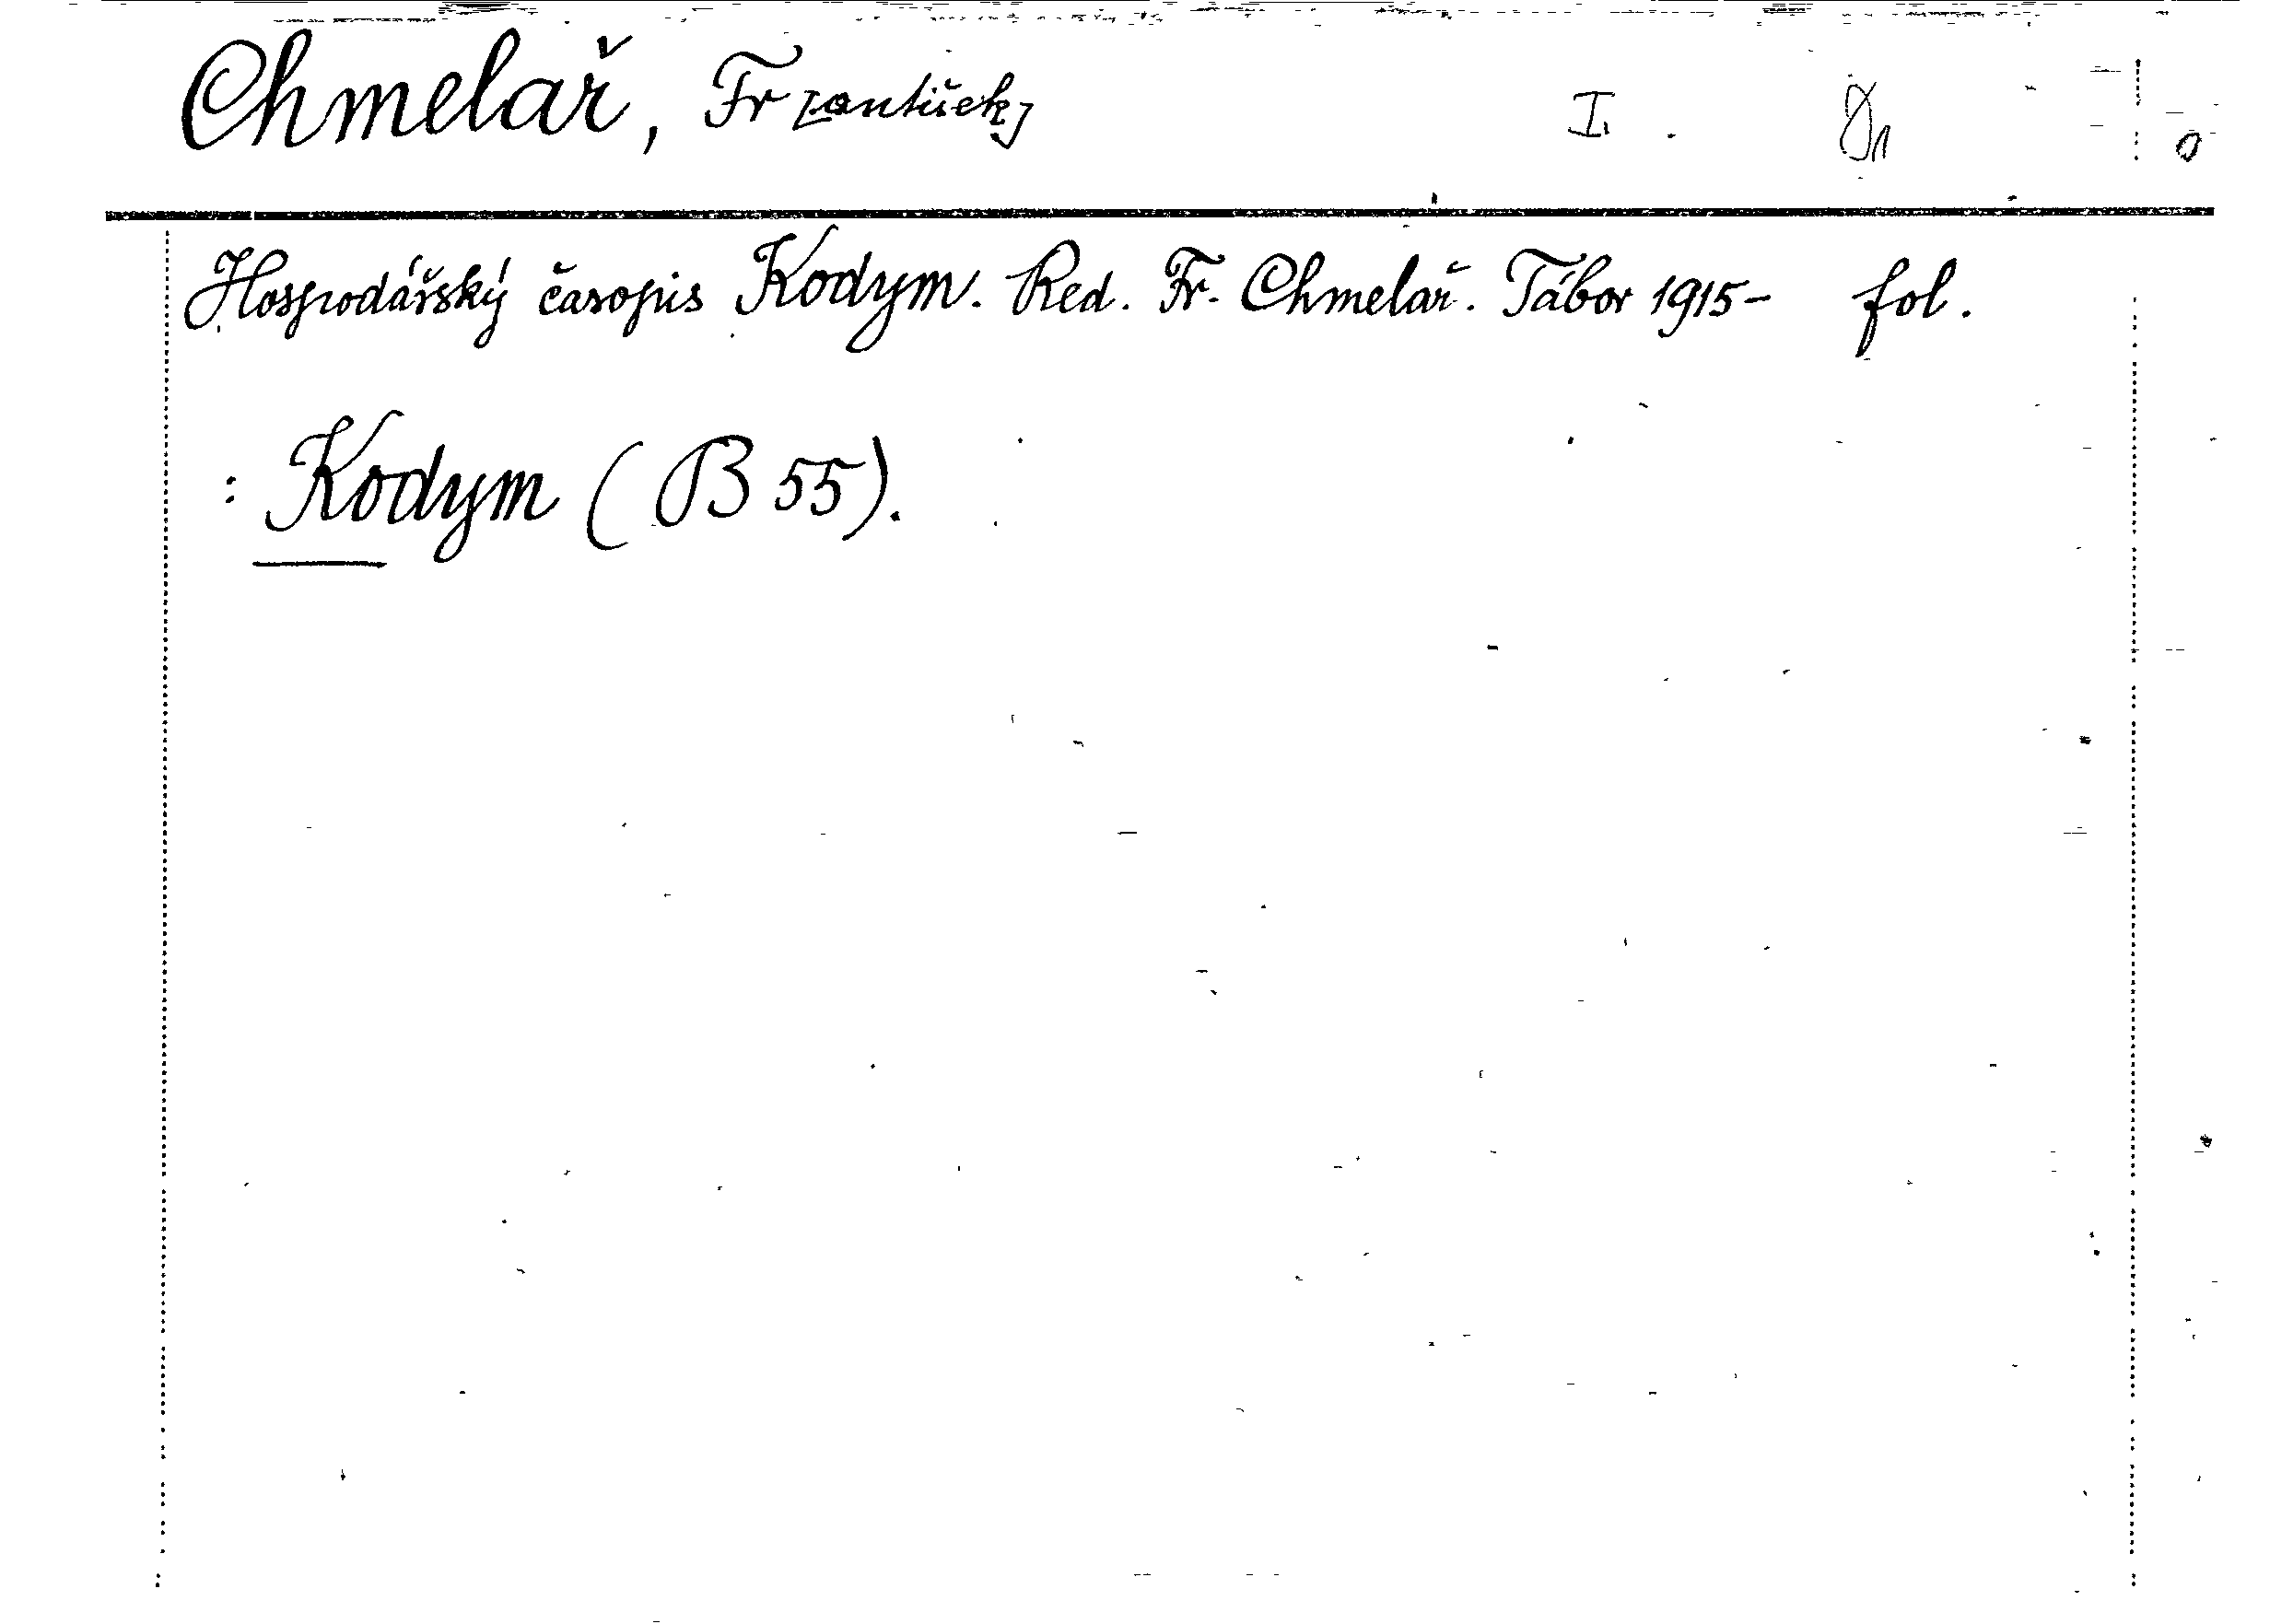 Chmelař, Fr[antišek] I.
Hospodářský časopis Kodym. Red. Fr. Chmelař. Tábor 1915- fol.
: Kodym (B 55).